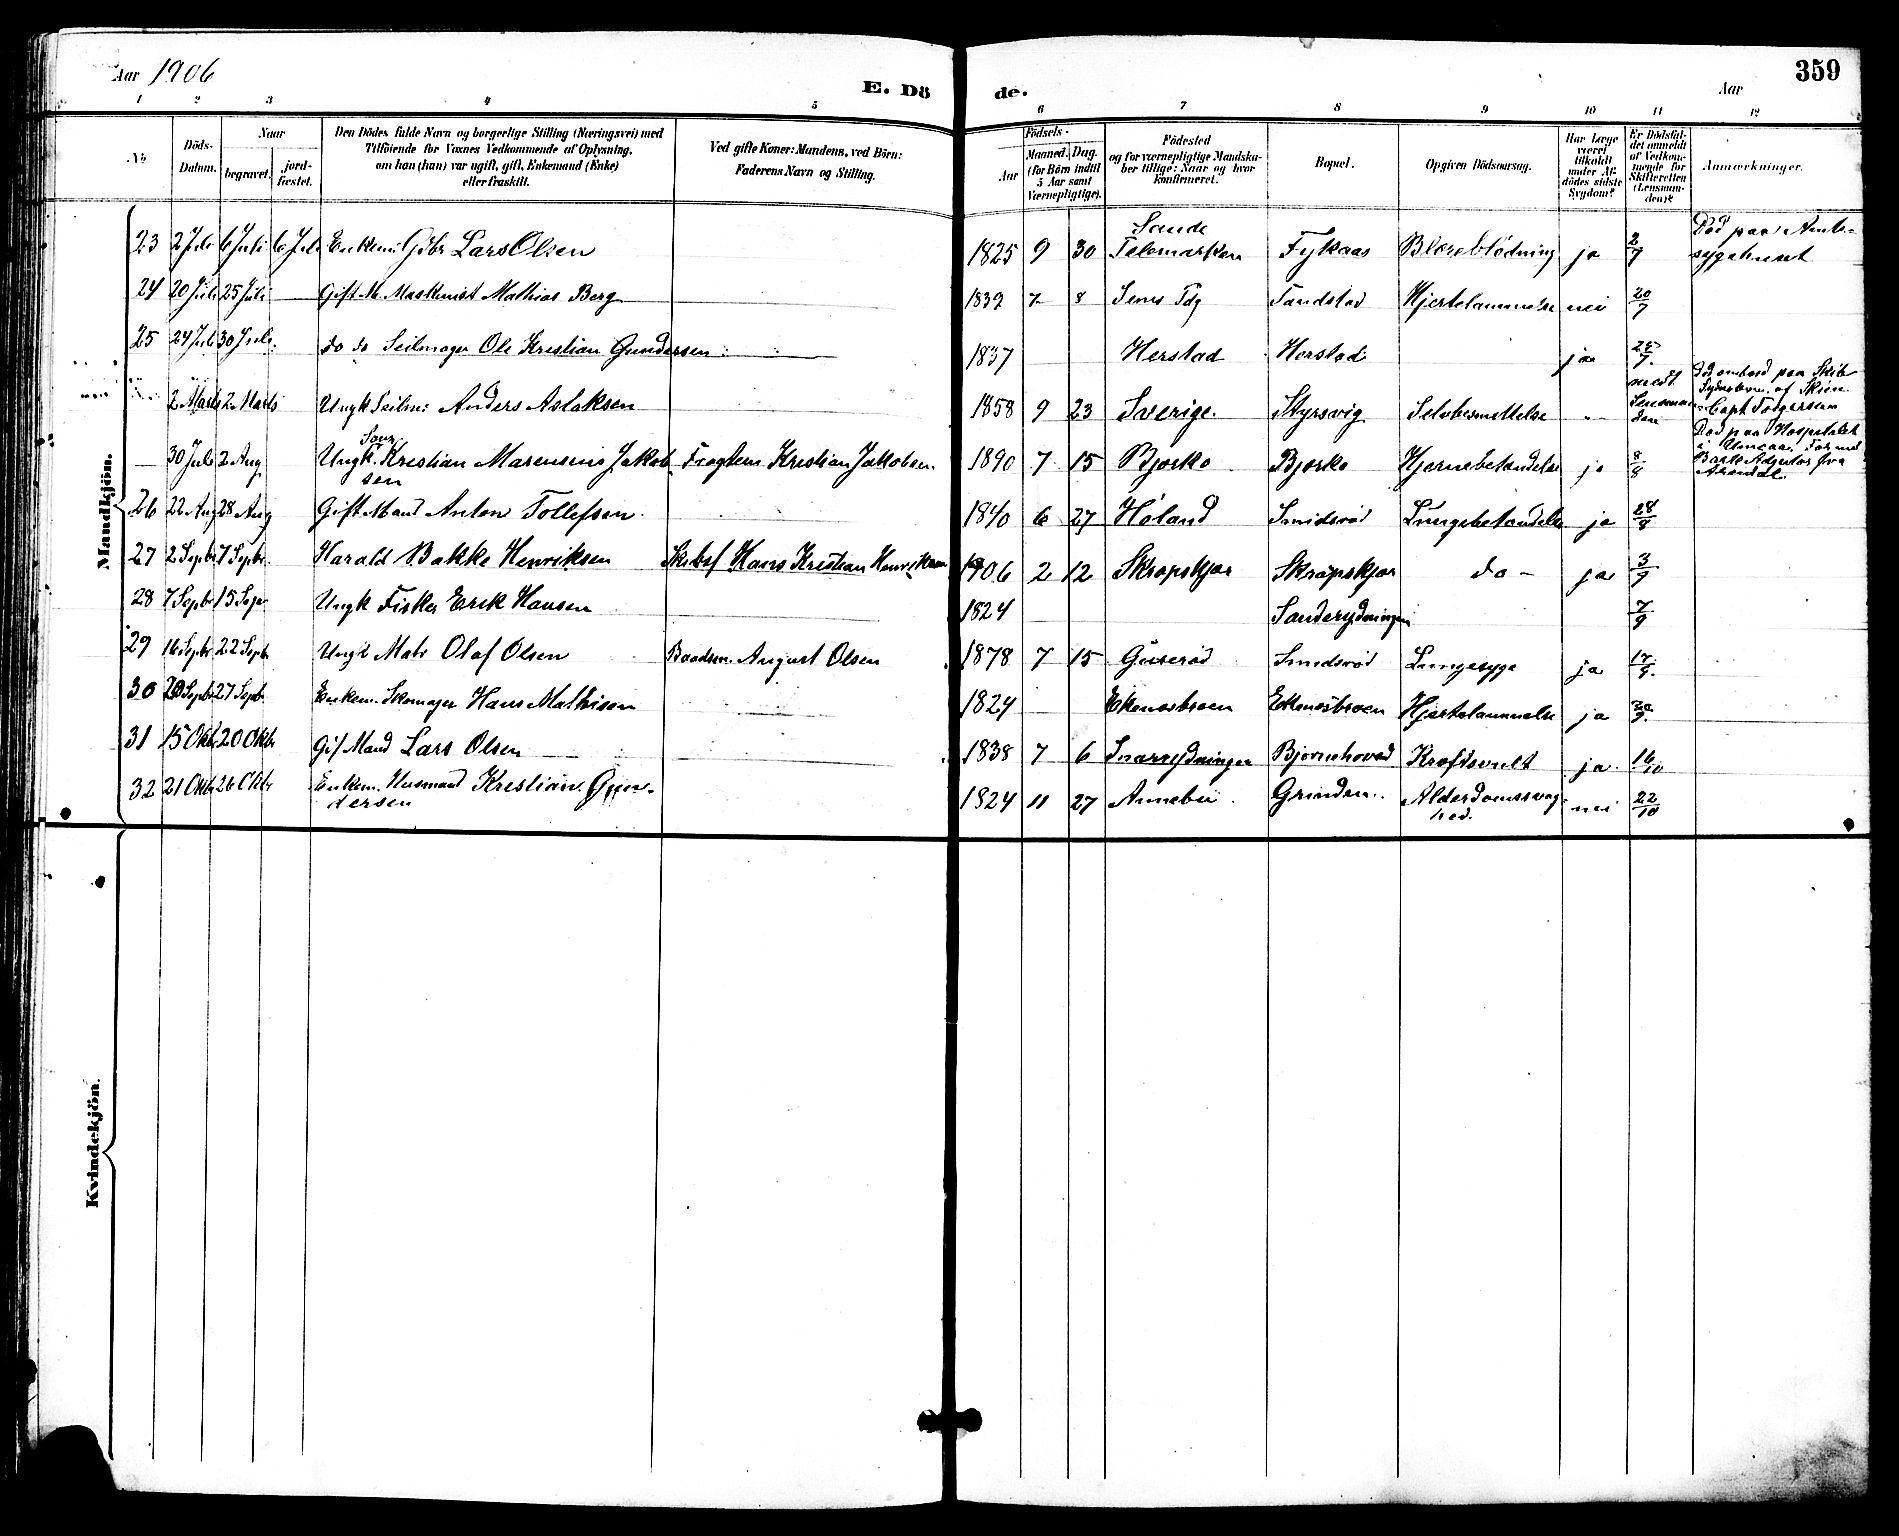 Aar 1906
E. Dö
de.
Aar
359
1 2 3 4 5
6 7 8 9 10 11 12
No
Döds-
Datum.
Naar
begravet.
jord-
fæstet.
Den Dödes fulde Navn og borgerlige Stilling (Næringsvei) med
Tilföiende for Voxnes Vedkommende af Oplysning,
om han (hun) var ugift, gift, Enkemand (Enke)
eller fraskilt.
Ved gifte Koner: Mandens, ved Börn:
Faderens Navn og Stilling.
Födsels-
Aar
Maaned. Dag.
(for Börn indtil
5 Aar samt
Værnepligtige).
Födested
og for værnepligtige Mandska-
ber tillige: Naar og hvor
konfirmeret.
Bopæl.
Opgiven Dödsaarsag.
Har Læge
været
tilkaldt
under Af-
dödes sidste
Sygdom?
Er Dödsfal-
det anmeldt
af Vedkom-
mende for
Skifteretten
(Lensman-
den)?
Anmærkninger.
Mandkjön.
23 2 Juli 6 Juli 6 Juli Enkem: Gdbr Lars Olsen 1825 9 30 Sande Telemarken Fykaas Blæreblödning ja 2/7 Död paa Amts-
sygehuset
24 20 Juli 25 Juli Gift M. Maskinist Mathias Berg 1839 7 8 Sems Fdg Tandstad Hjertelammelse nei 20/7
25 24 Juli 30 Juli do do Seilmager Ole Kristian Gundersen 1837 Herstad Herstad ja 25/7
2 Marts 2 Marts Ungk Seilm: Anders Aslaksen 1858 9 23 Sverige Styrsvig Selvbesmittelse medt Lensman-
den Död ombord paa Skib
af Skien
Capt Torgersen
30 Juli 2 Aug Ungk. Kristian Marensius Jakob-
sen Fragtem Kristian Jakobsen 1890 7 15 Bjerkö Bjerkö Hjernebetændelse ja 8/8 Död paa Hospitalet
i Umeaa. For med
Bark fra
Arendal.
26 22 Aug 28 Aug Gift Mand Anton Tollefsen 1840 6 27 Höland Smidsröd Lungebetændelse ja 28/8
27 2 Septbr 7 Septbr. Harald Bakke Henriksen Skibsf Hans Kristian Henriksen 1906 2 12 Skropskjær Skropskjær do - ja 3/9
28 7 Septbr 15 Sept Ungk Fisker Erik Hansen 1824 Sanderydningen 7/9
29 16 Septbr 22 Septb Ungk Matr Olaf Olsen Baadsm. August Olsen 1878 7 15 Guseröd Smidsröd Lungesyge ja 17/9
30 20 Septbr 27 Septbr Enkem. Skomager Hans Mathisen 1824 Ekenæsbroen Ekenæsbroen Hjertelammelse ja 20/9
31 15 Oktbr 20 Oktbr Gif Mand Lars Olsen 1838 7 6 Snarrydningen Bjørnehoved Kræftsvulst ja 16/10
32 21 Oktbr 26 Oktbr Enkem. Husmand Kristian Gun-
dersen 1824 11 27 Annebu Grinden Alderdomssvag-
hed. nei 22/10
Kvindekjön.